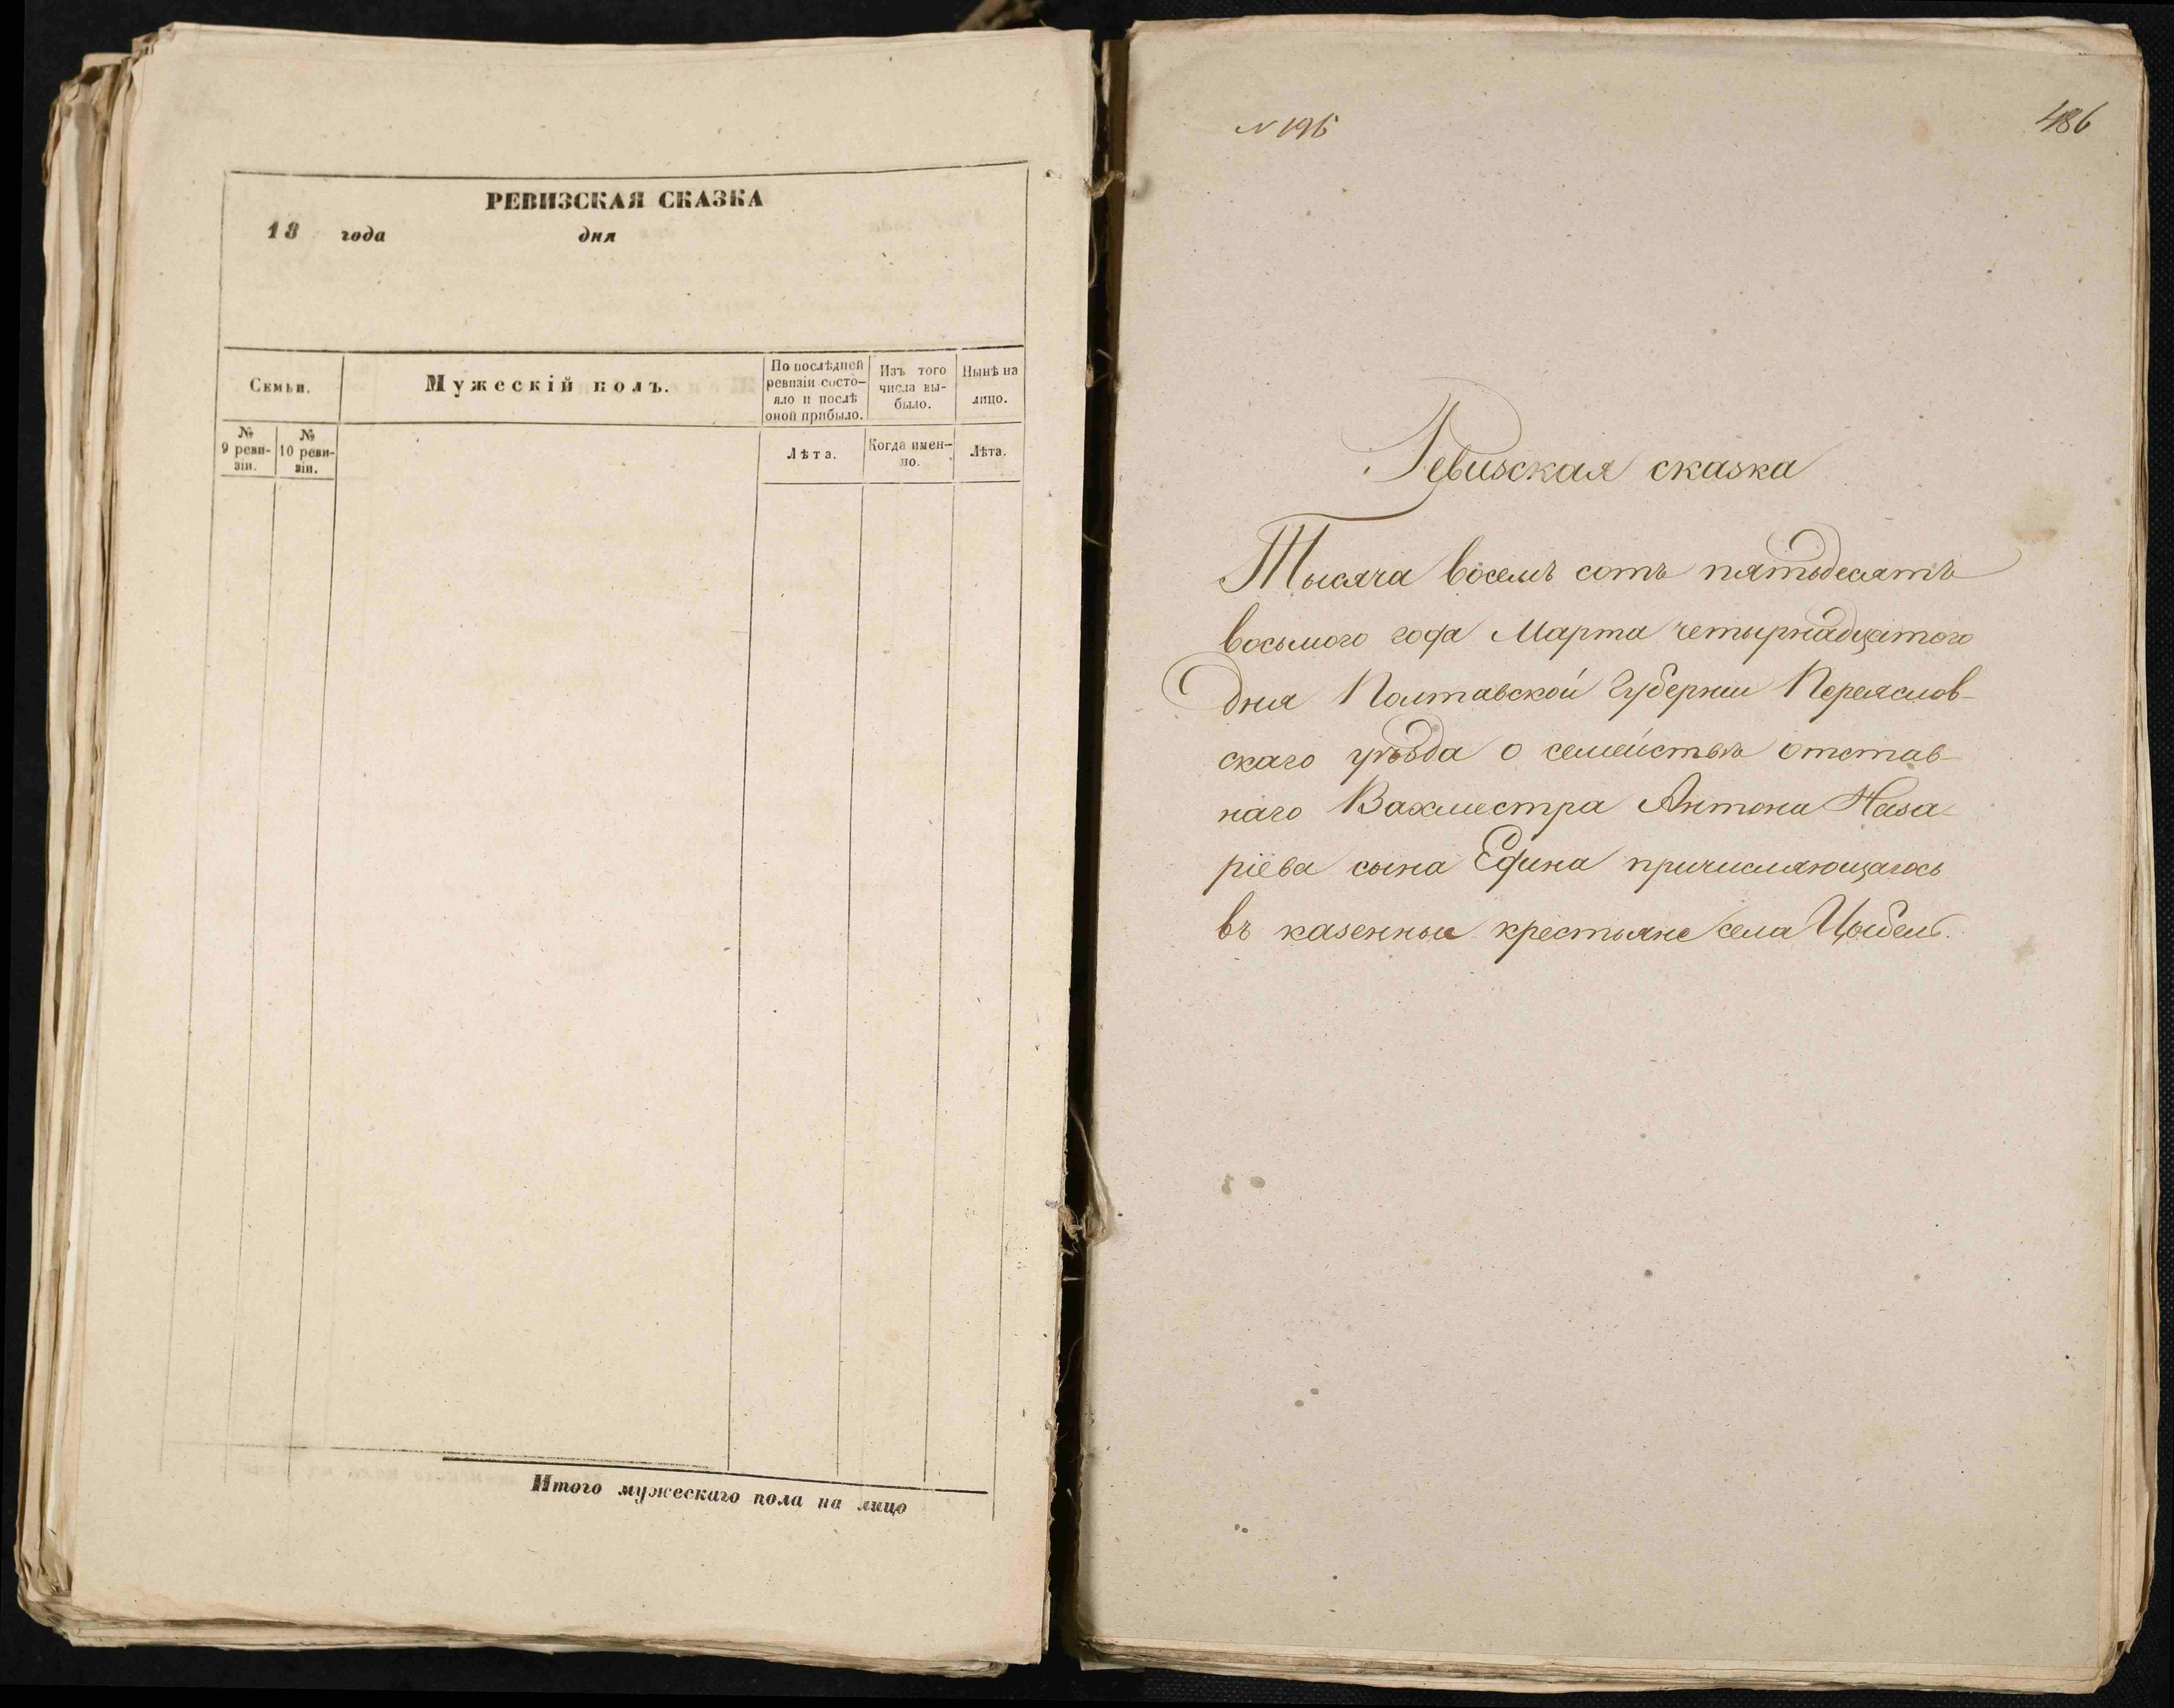 РЕВИЗСКАЯ СКАЗКА
18 года дня
Семьи.
Мужескій полъ.
По послѣдней
ревизіи состо-
яло и послѣ
оной прибыло.
Изъ того
числа вы-
было.
Нынѣ на
лицо.
№
9 реви-
зіи.
№
10 реви-
зіи.
Лѣта.
Когда имен-
но.
Лѣта.
Итого мужескаго пола на лицо
N 195
486
Ревизская сказка
Тысяча восемъ сотъ пятьдесятъ
восьмого года Марта четырнадцатого
дня Полтавской Губерніи Переяслов-
скаго уѣзда о семействѣ отстав-
наго Вахмистра Антона Наза-
ріева сына Едина причисляющагось
въ казенные крестьяне села Цыбель.